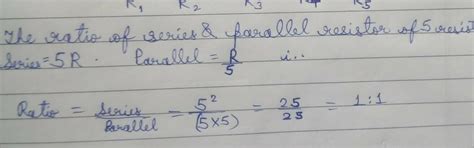 R1 R2 R3 R5
The ratio of series & parallel resistor of 5 resist
Series = 5R . Parallel = R/5 i..
Ratio = Series/Parallel = 5²/(5×5) = 25/25 = 1:1